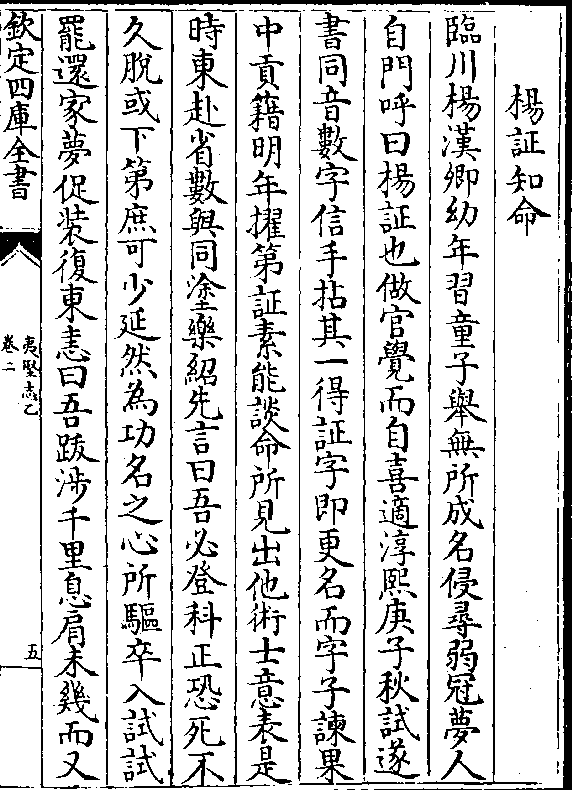 楊証知命
臨川楊漢卿幼年習童子舉無所成名侵尋弱冠夢人
自門呼曰楊証也做官覺而自喜適淳熙庚子秋試遂
書同音數字信手拈其一得証字即更名而字子諫果
中貢籍明年擢第証素能談命所見出他術士意表是
時東赴省數與同塗樂紹先言曰吾必登科正恐死不
久脫或下第庶可少延然為功名之心所驅卒入試試
罷還家夢促裝復東恚曰吾跋涉千里息肩未幾而又
欽定四庫全書
夷堅志乙
卷二
五